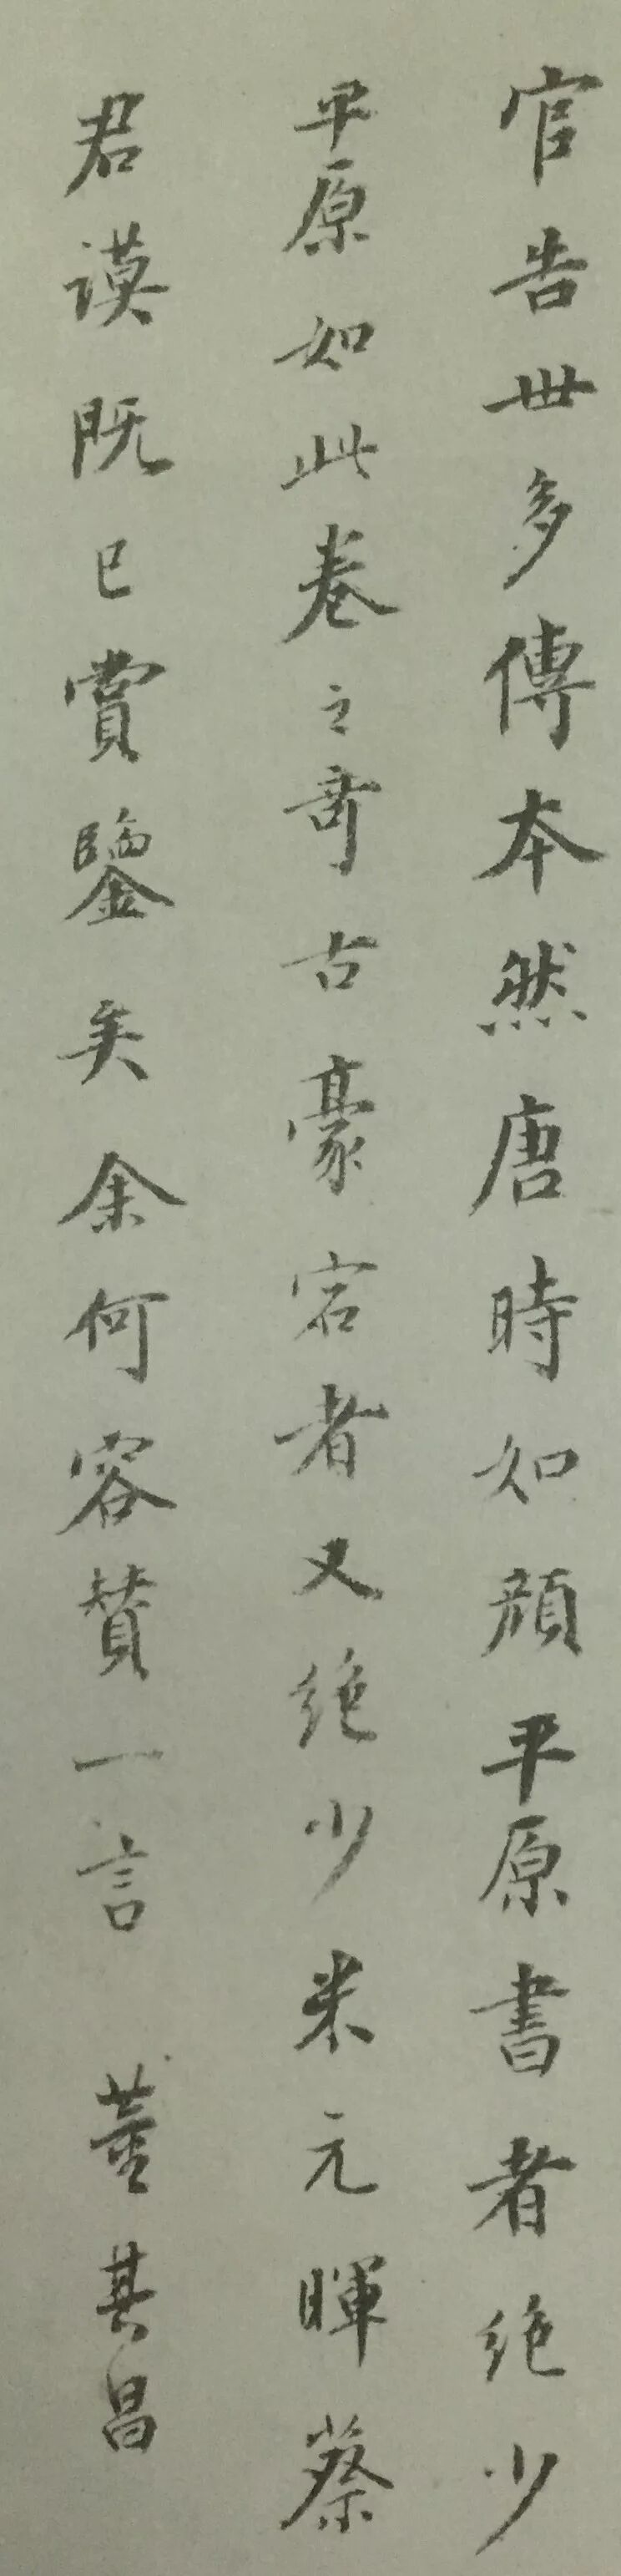 官告世多傳本然唐時如顏平原書者絶少
平原如此卷之奇古豪宕者又絶少米元暉蔡
君謨既已賞鑒矣余何容贊一言 董其昌